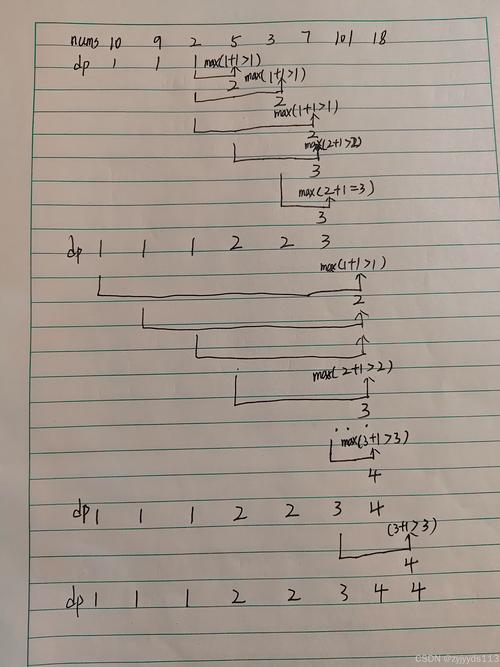 nums 10 9 2 5 3 7 101 18
dp 1 1 1 max(1+1>1)
2 max(1+1>1)
2
max(1+1>1)
2
max(2+1>2)
3
max(2+1=3)
3
dp 1 1 1 2 2 3
max(1+1>1)
2
max(2+1>2)
3
...
max(3+1>3)
4
dp 1 1 1 2 2 3 4
(3+1>3)
4
dp 1 1 1 2 2 3 4 4
CSDN @zyjyyds113